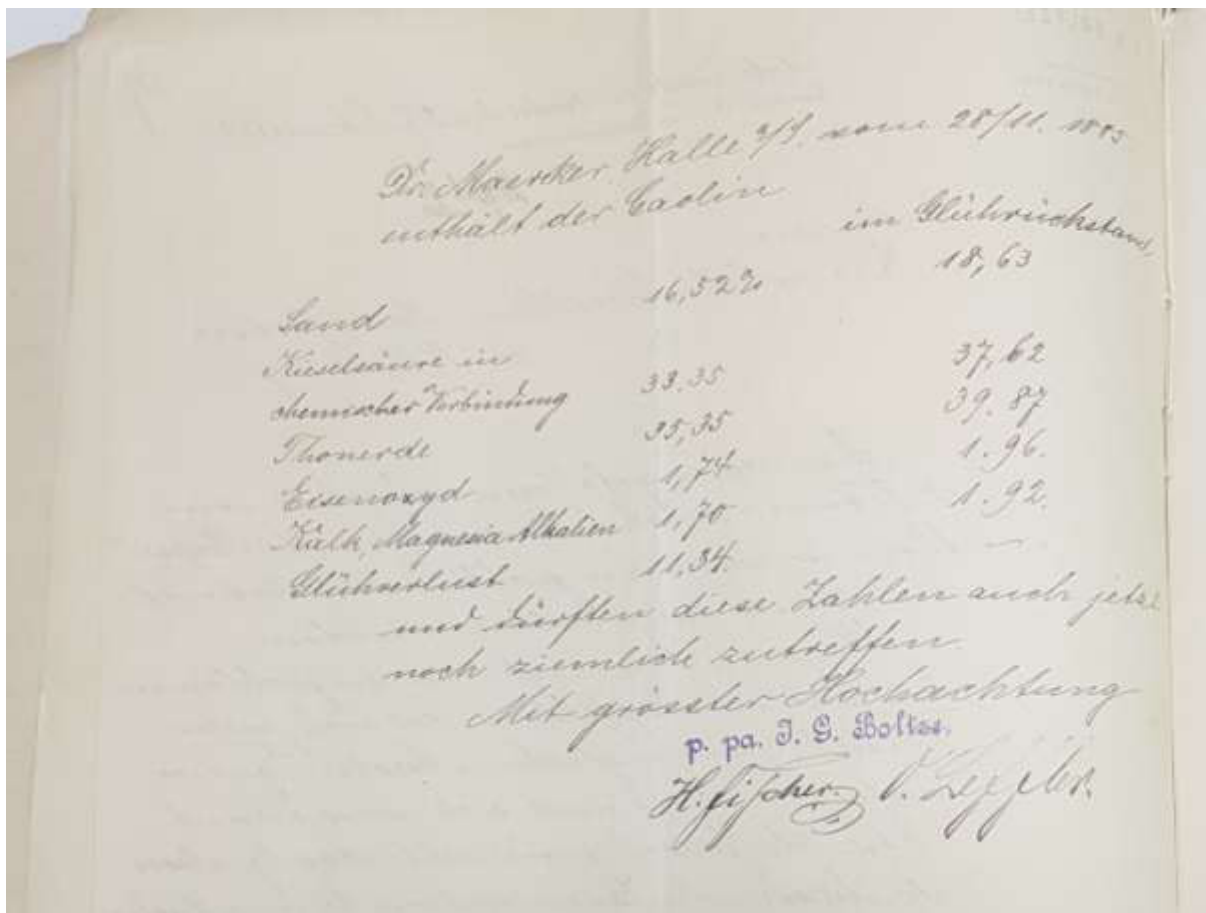 Dr. Maercker, Halle a/S. vom 28/11. 1885
enthält der Caolin
im Glührückstand,
Sand 16,52% 18,63
Kieselsäure in
chemischer Verbindung 33.35 37,62
Thonerde 35,35 39.87
Eisenoxyd 1,74 1.96.
Kalk, Magnesia Alkalien 1,70 1.92.
Glühverlust 11,34. —
und dürften diese Zahlen auch jetzt
noch ziemlich zutreffen.
Mit grösster Hochachtung
p. pa. J. G. Boltze.
H. Fischer.